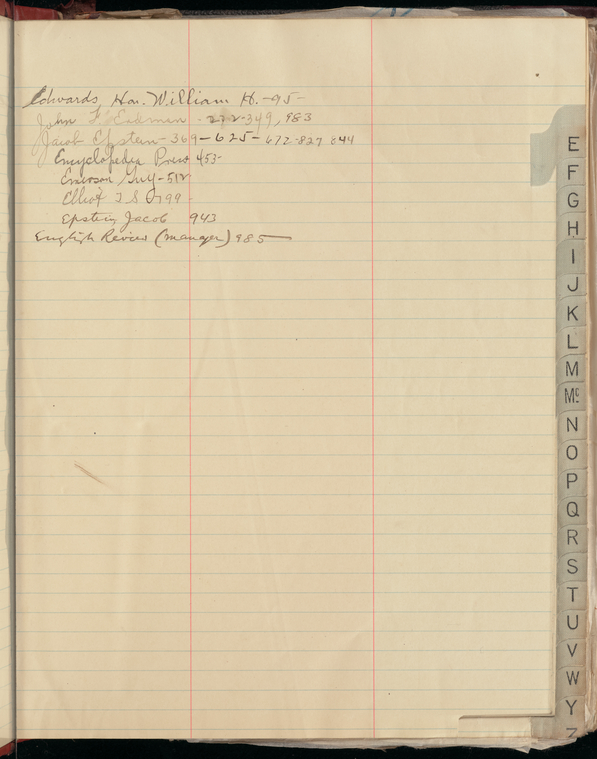 Edwards, Hon. William H. - 95 -
John F. Eerdman - 272 - 349, 983
Jacob Epstein - 369 - 625 - 672 - 827 844
Encyclopedia Press 453 -
Emerson Guy - 512
Elliot T S 799 -
Epstein, Jacob 943
English Review (manager) 985
E
F
G
H
I
J
K
L
M
Mc
N
O
P
Q
R
S
T
U
V
W
Y
Z